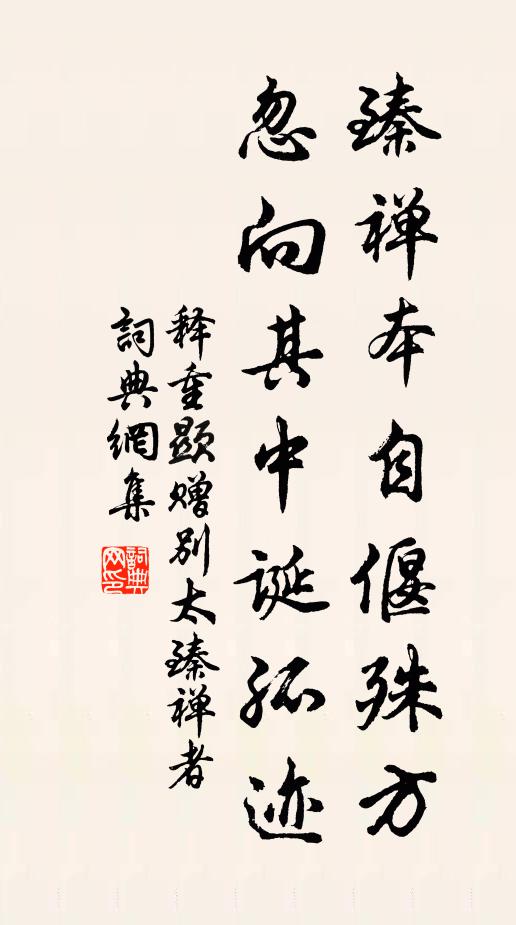 臻禅本自偃殊方
忽向其中诞孤迹
释重顯赠别太臻禅者
詞典網集
詞典网印